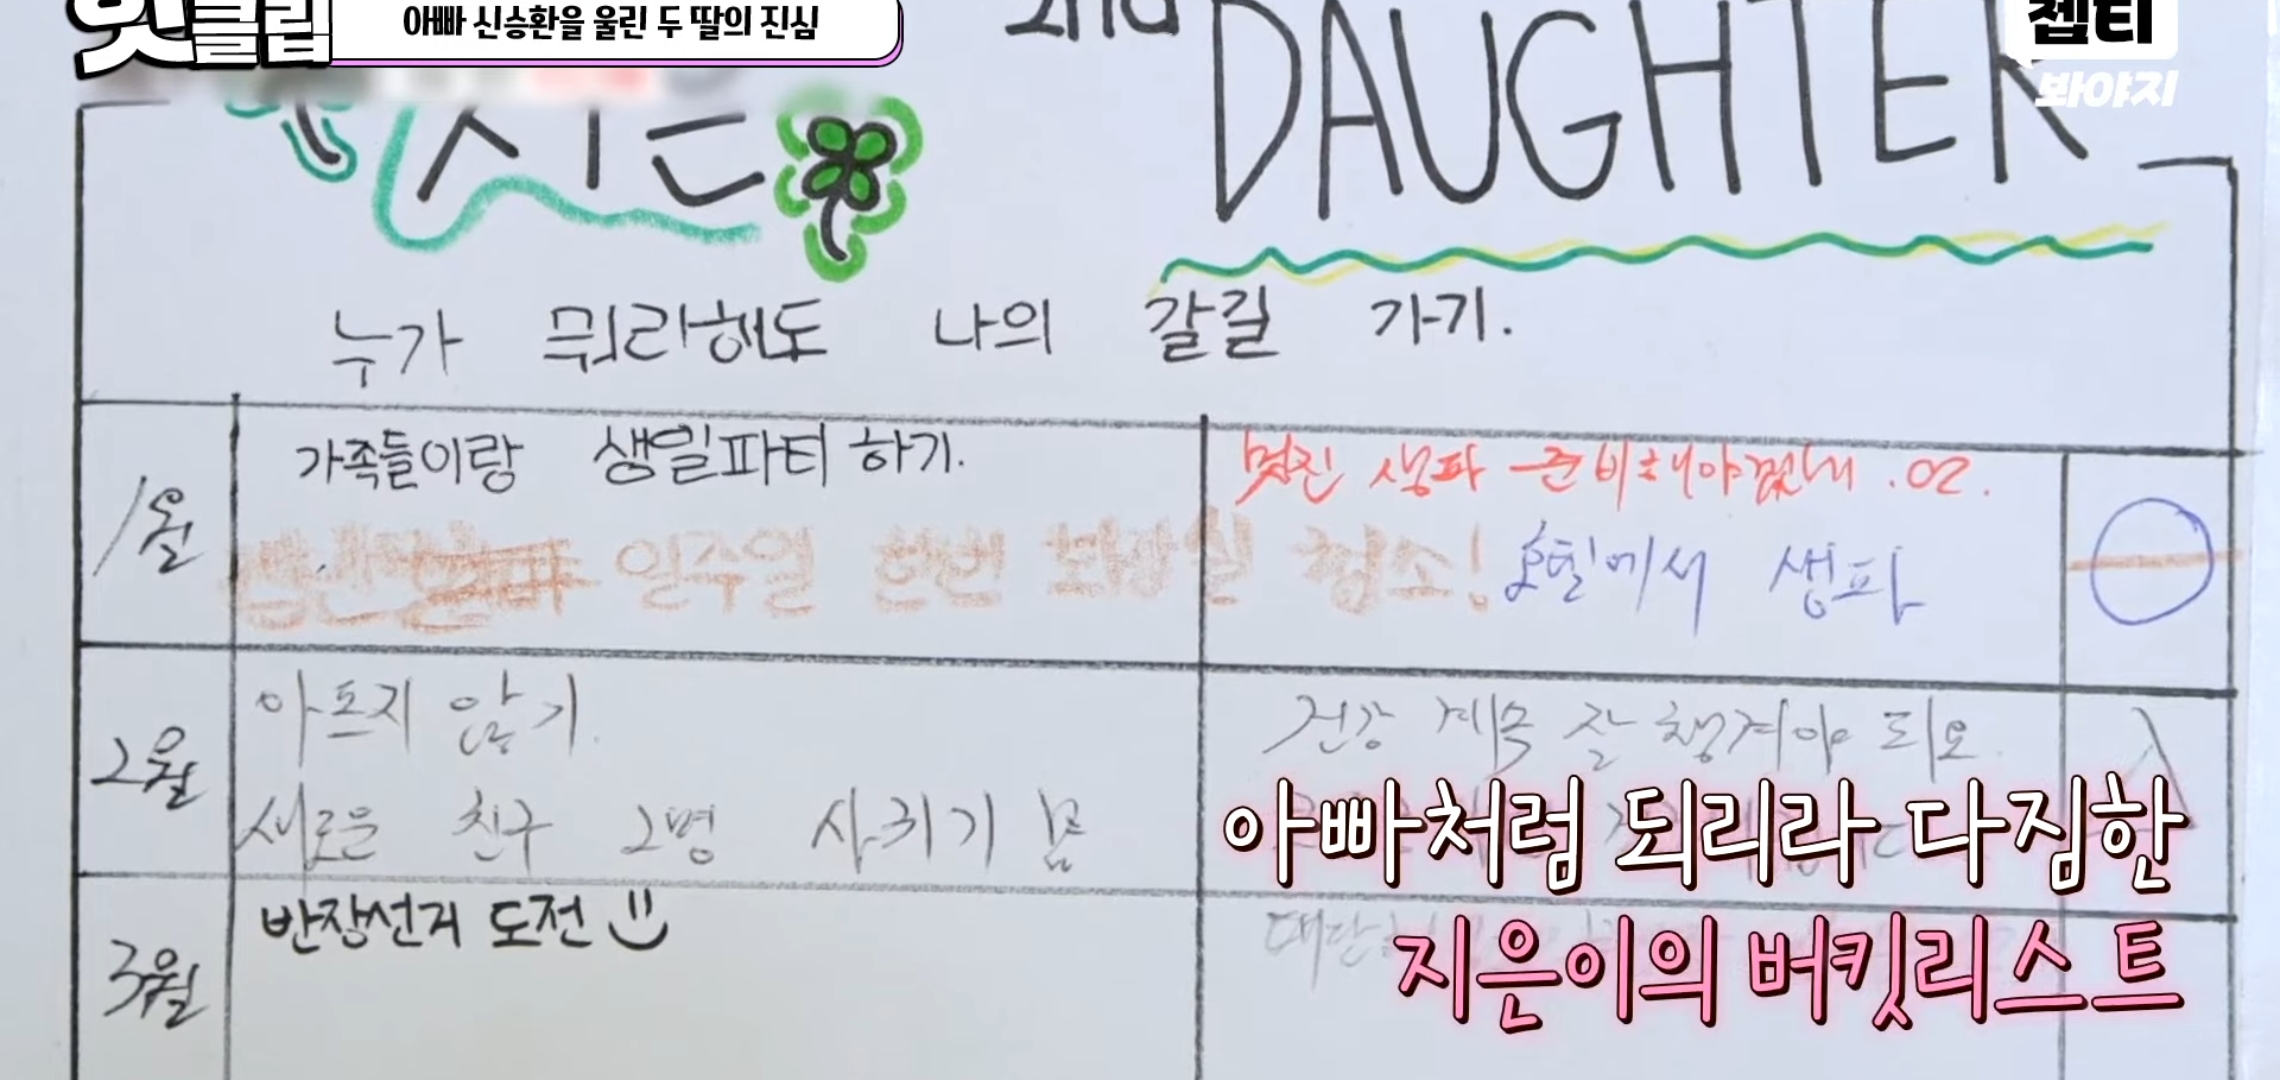 핫클립
아빠 신승환을 울린 두 딸의 진심
2nd DAUGHTER
챕터
봐야지
지은
누가 뭐라해도 나의 갈길 가기.
1월
가족들이랑 생일파티 하기.
멋진 생파 준비해야겠네.
일주일 한번 화장실 청소!
호텔에서 생파
2월
아프지 않기.
건강 계속 잘 챙겨야 되오
새로운 친구 2명 사귀기
3월
반장선거 도전
아빠처럼 되리라 다짐한
지은이의 버킷리스트